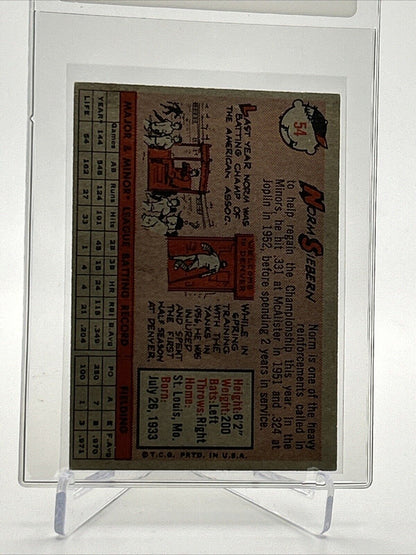 54
NORM SIEBERN
Norm is one of the heavy
reinforcements called in
to help regain the Championship this year. In the
Minors, he hit .331 at McAlister in 1951 and .324 at
Joplin in 1952, before spending 2 years in service.
LAST YEAR NORM WAS
BATTING CHAMP OF
THE AMERICAN ASSOC.
WELCOME
TO DENVER
WHILE IN
SPRING
WITH THE
YANKS IN
1956 HE WAS
INJURED
AND SPENT
THE FIRST
HALF SEASON
AT DENVER.
Height: 6'2"
Weight: 200
Bats: Left
Throws: Right
Home:
St. Louis, Mo.
Born:
July 26, 1933
MAJOR & MINOR* LEAGUE BATTING RECORD FIELDING
Games AB Runs Hits 2B 3B HR RBI B.Avg PO A E F.Avg
YEAR* 144 545 124 191 45 15 24 118 .349 250 7 8 .970
LIFE 54 162 27 33 1 4 4 21 .204 100 1 3 .971
© T.C.G. PRTD. IN U.S.A.